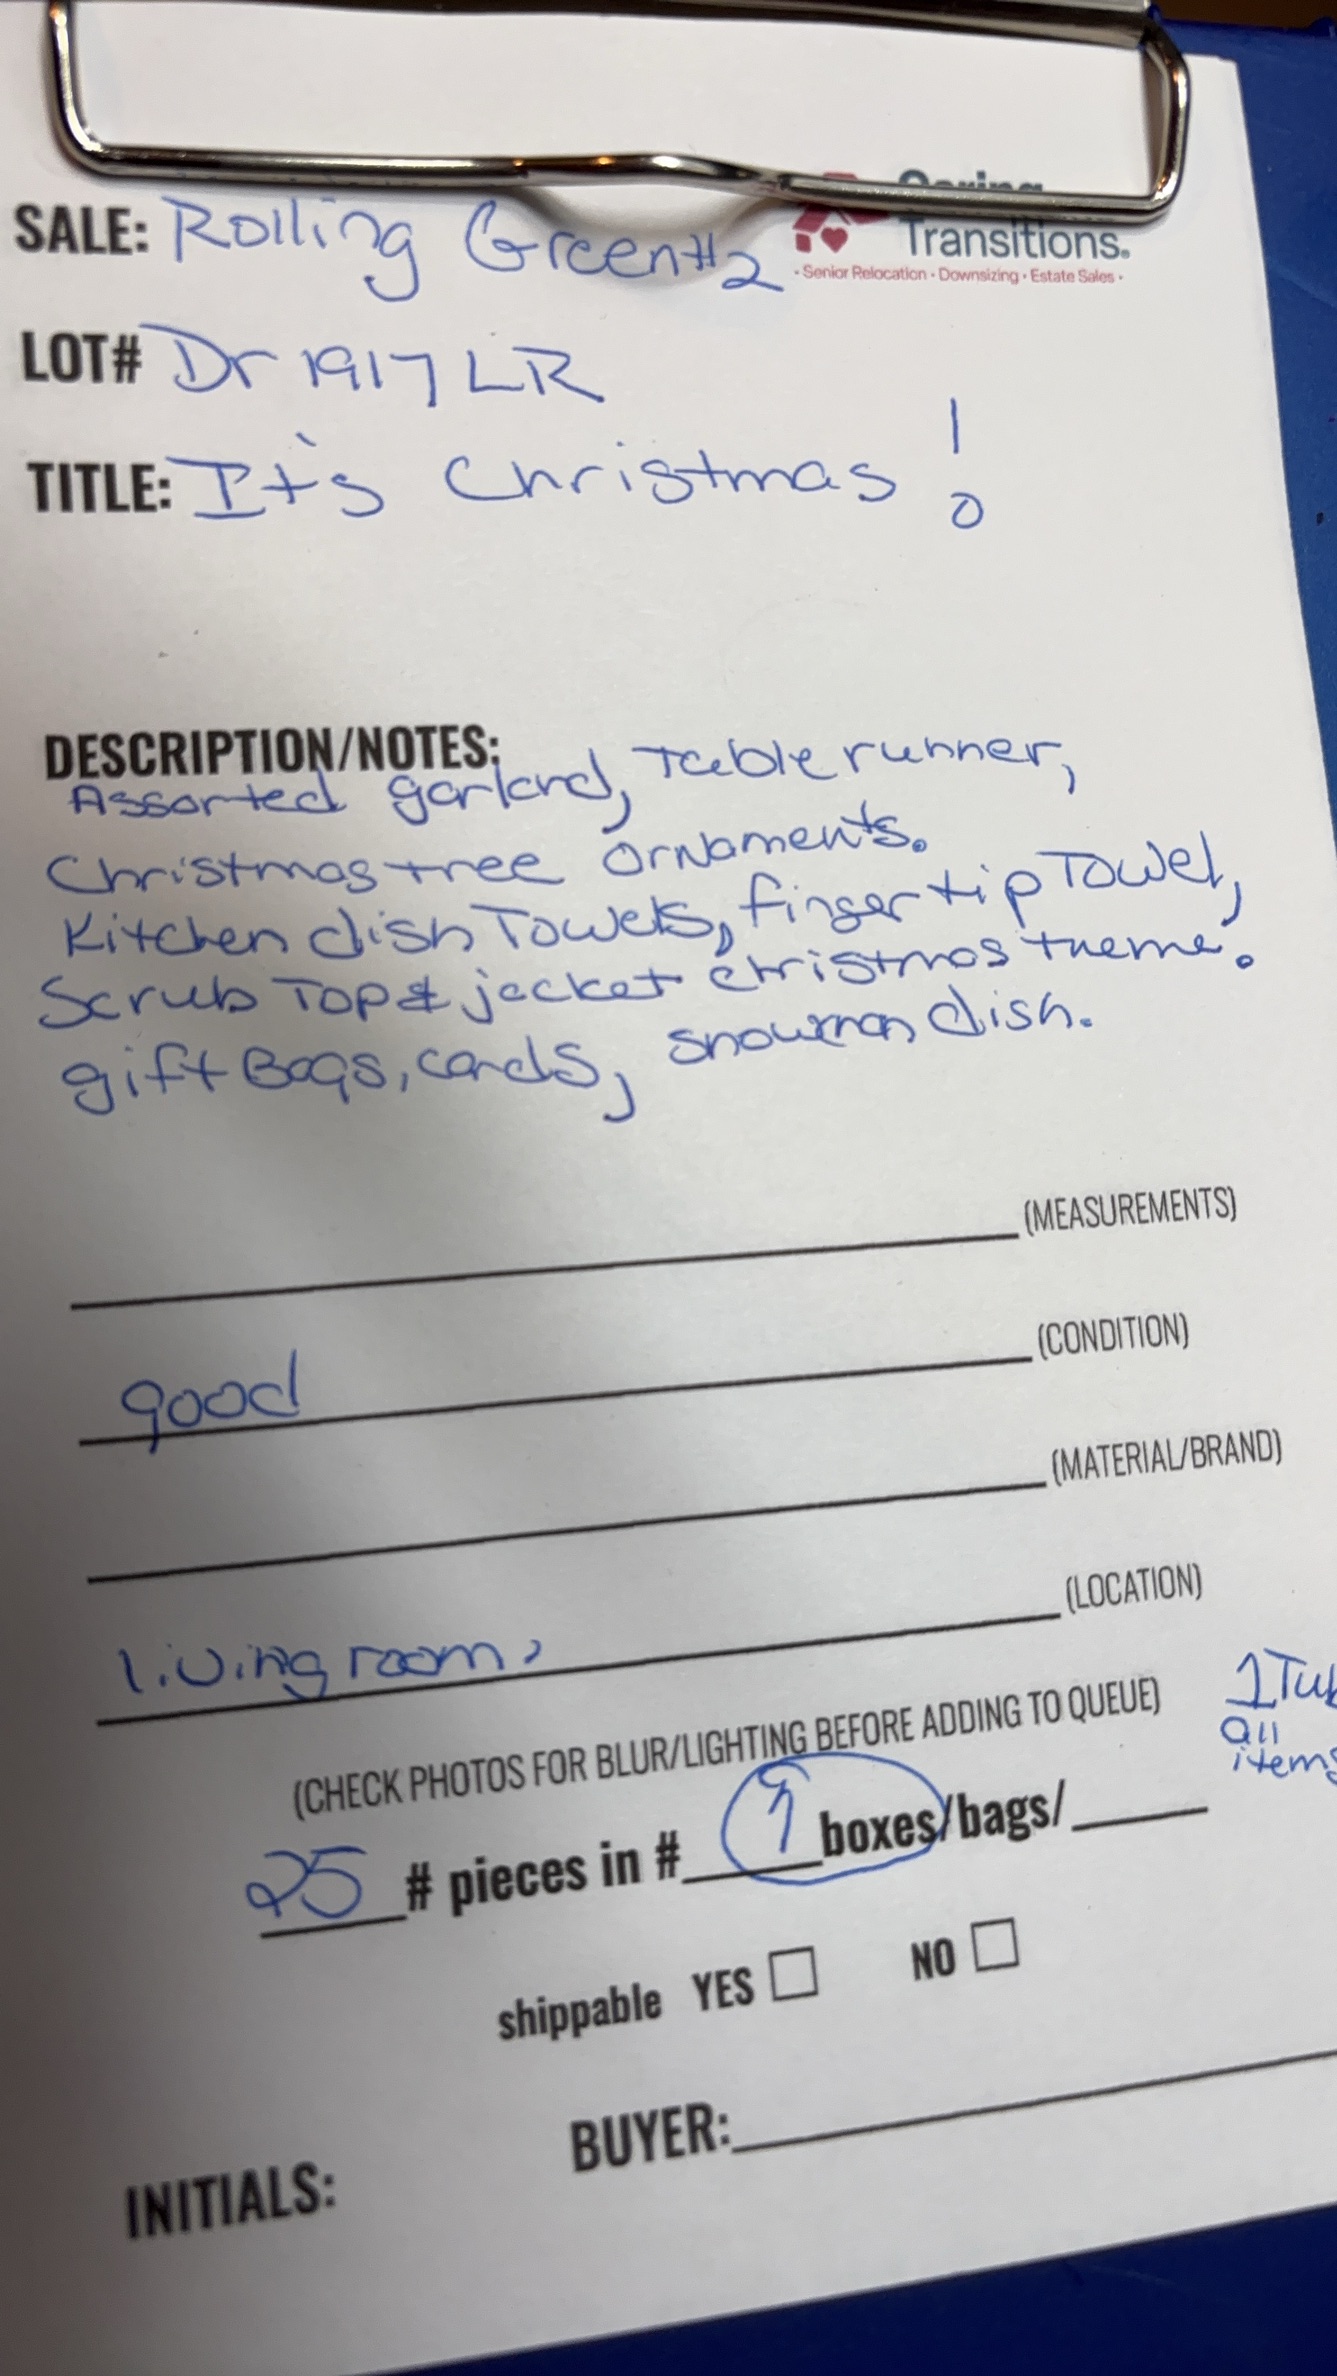 Caring
Transitions.
• Senior Relocation • Downsizing • Estate Sales •
SALE: Rolling Green #2
LOT# Dr 1917 LR
TITLE: It's Christmas !
DESCRIPTION/NOTES:
Assorted garland, Table runner,
Christmas tree ornaments.
Kitchen dish Towels, finger tip Towel,
Scrub Top & jacket christmas theme.
gift Bags, cards, snowman dish.
(MEASUREMENTS)
good (CONDITION)
(MATERIAL/BRAND)
living room, (LOCATION)
(CHECK PHOTOS FOR BLUR/LIGHTING BEFORE ADDING TO QUEUE)
1 Tub
all
items
25 # pieces in # boxes/bags/
shippable YES NO
BUYER:
INITIALS: